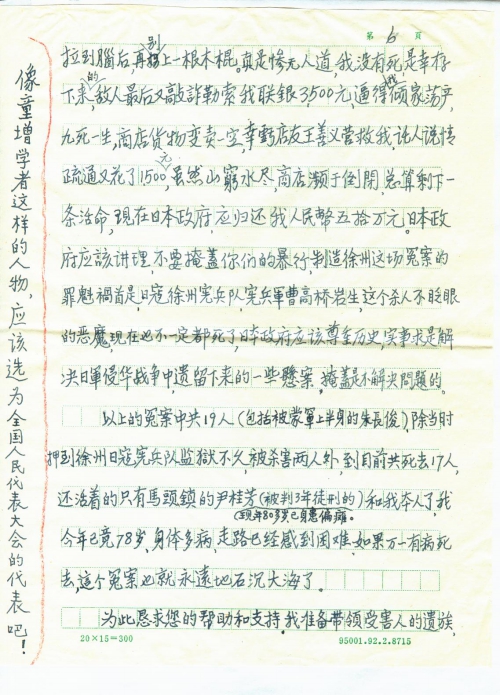 第 6 页
拉到腦后,再别上一根木棍。真是慘无人道,我没有死是幸存
下来的,敌人最后又敲詐勒索我联銀3,500元,逼得我倾家荡产,
九死一生,商店貨物变卖一空,幸虧店友王善义营救我託人说情
疏通又花了1500元,虽然山窮水尽,商店濒于倒閉,总算剩下一
条活命,现在日本政府,应归还我人民幣五拾万元。日本政
府应該讲理,不要掩蓋你们的暴行,制造徐州这场冤案的
罪魁禍首是,日寇徐州宪兵队,宪兵軍曹高桥岩生,这个杀人不眨眼
的恶魔,现在也不一定都死了,日本政府应该尊重历史,实事求是解
决日軍侵华战争中,遗留下来的一些懸案,掩蓋是不解决問題的。
以上的冤案中共19人(包括被蒙單上半身的朱長俊),除当时
押到徐州日寇宪兵队监獄不久,被杀害两人外,到目前共死去17人,
还活着的只有馬頭鎮的尹桂芳(被判3年徒刑的)和我本人了,我
(现年80多岁已身患偏瘫。
今年已竟78岁,身体多病,走路已经感到困难,如果万一有病死
去,这个冤案也就永遠地石沉大海了。
为此恳求您的帮助和支持。我准备带领受害人的遗族,
20×15=300
95001.92.2.8715
像童增学者这样的人物,应该选为全国人民代表大会的代表吧!